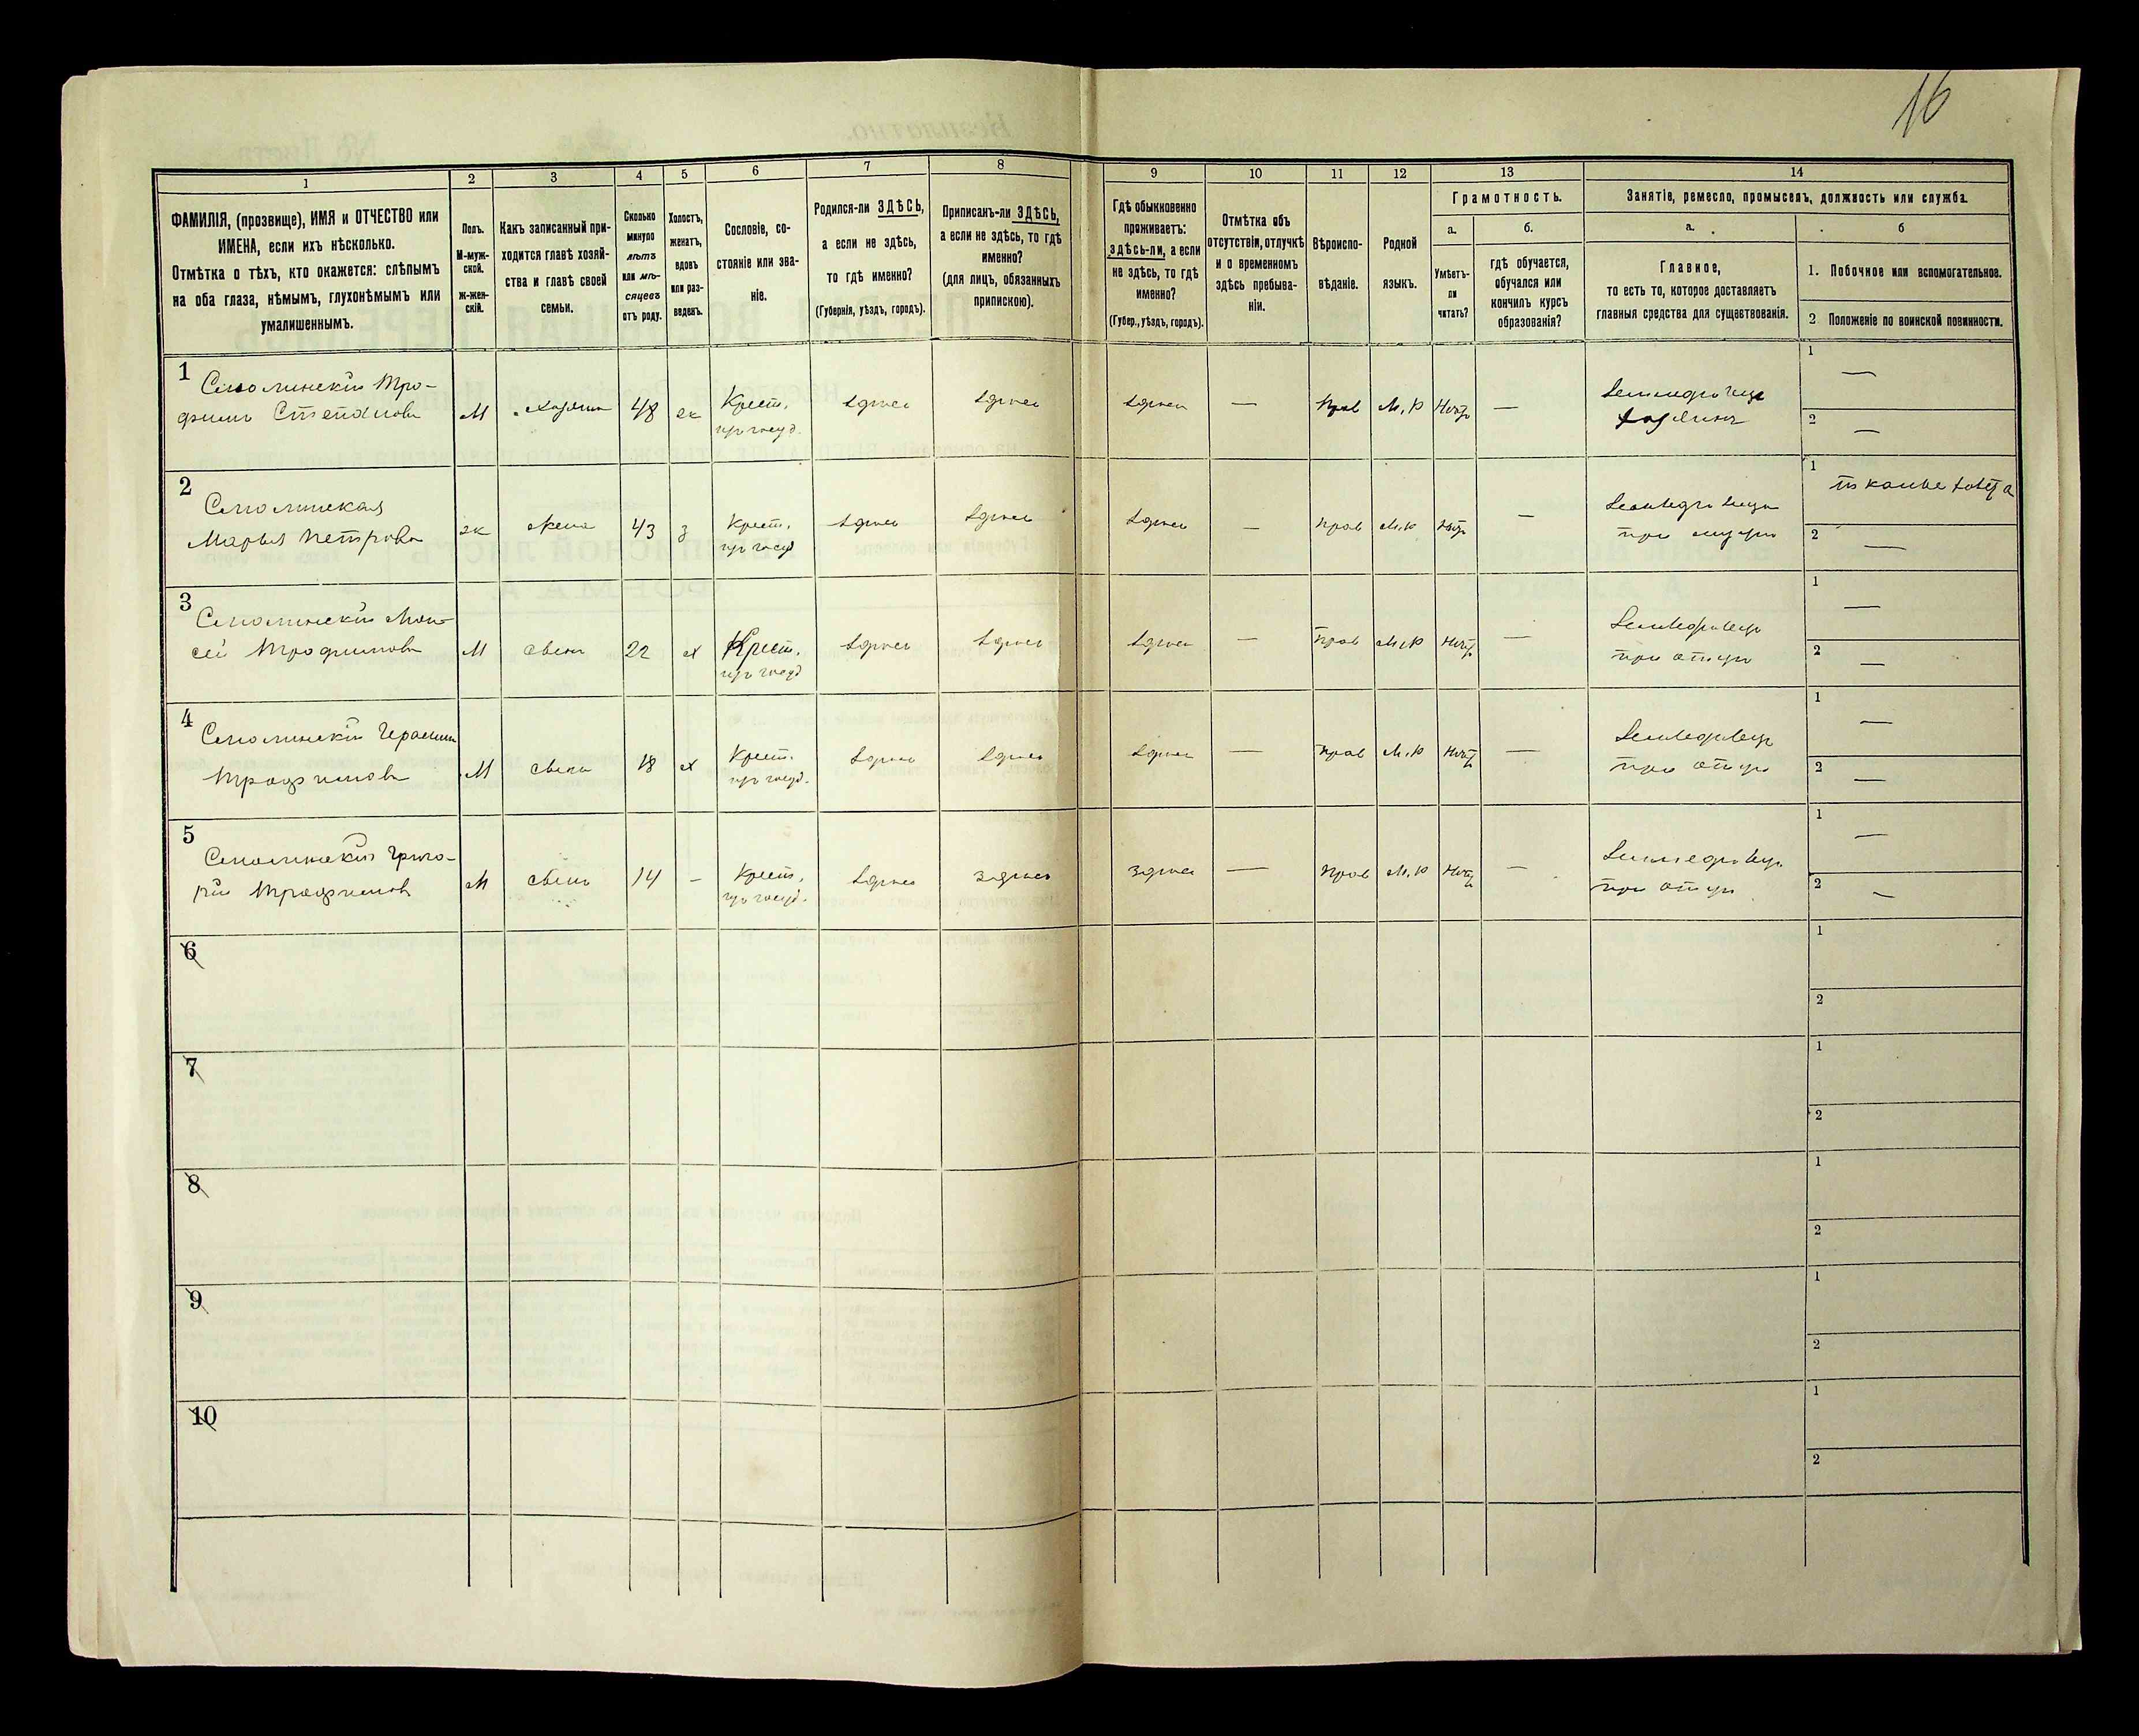 16
1
2
3
4
5
6
7
8
9
10
11
12
13
14
ФАМИЛІЯ, (прозвище), ИМЯ и ОТЧЕСТВО или
ИМЕНА, если ихъ нѣсколько.
Отмѣтка о тѣхъ, кто окажется: слѣпымъ
на оба глаза, нѣмымъ, глухонѣмымъ или
умалишеннымъ.
Полъ.
М-муж-
ской.
ж-жен-
скій.
Какъ записанный при-
ходится главѣ хозяй-
ства и главѣ своей
семьи.
Сколько
минуло
лѣтъ
или мѣ-
сяцевъ
отъ роду.
Холостъ,
женатъ,
вдовъ
или раз-
веденъ.
Сословіе, со-
стояніе или зва-
ніе.
Родился-ли ЗДѢСЬ,
а если не здѣсь,
то гдѣ именно?
(Губернія, уѣздъ, городъ).
Приписанъ-ли ЗДѢСЬ,
а если не здѣсь, то гдѣ
именно?
(для лицъ, обязанныхъ
припискою).
Гдѣ обыкновенно
проживаетъ:
здѣсь-ли, а если
не здѣсь, то гдѣ
именно?
(Губер., уѣздъ, городъ).
Отмѣтка объ
отсутствіи, отлучкѣ
и о временномъ
здѣсь пребыва-
ніи.
Вѣроиспо-
вѣданіе.
Родной
языкъ.
Грамотность.
а.
Умѣетъ-
ли
читать?
б.
гдѣ обучается,
обучался или
кончилъ курсъ
образованія?
Занятіе, ремесло, промыселъ, должность или служба.
а.
Главное,
то есть то, которое доставляетъ
главныя средства для существованія.
б
1. Побочное или вспомогательное.
2 Положеніе по воинской повинности.
1
Смолинскій Тро-
фимъ Степановъ
М
Хозяинъ
48
ж
Крест.
из госуд.
здѣсь
здѣсь
здѣсь
—
прав
М. Р
Нѣтъ
—
Земледѣлецъ
хозяинъ
1 —
2 —
2
Смолинская
Марья Петрова
ж
жена
43
з
Крест.
из госуд
здѣсь
здѣсь
здѣсь
—
прав
М. Р
Нѣтъ
—
при мужѣ
1
2 —
3
Смолинскій Мои-
сей Трофимовъ
М
сынъ
22
х
Крест.
из госуд
здѣсь
здѣсь
здѣсь
—
прав
М. Р
Нѣтъ
—
Земледѣлецъ
при отцѣ
1 —
2 —
4
Смолинскій Герасимъ
Трофимовъ
М
сынъ
18
х
Крест.
из госуд.
здѣсь
здѣсь
здѣсь
—
прав
М. Р
Нѣтъ
—
Земледѣлецъ
при отцѣ
1 —
2 —
5
Смолинскій Григо-
рій Трофимовъ
М
сынъ
14
—
Крест.
из госуд.
здѣсь
здѣсь
здѣсь
—
прав
М. Р
Нѣтъ
—
Земледѣлецъ
при отцѣ
1 —
2 —
6
1
2
7
1
2
8
1
2
9
1
2
10
1
2